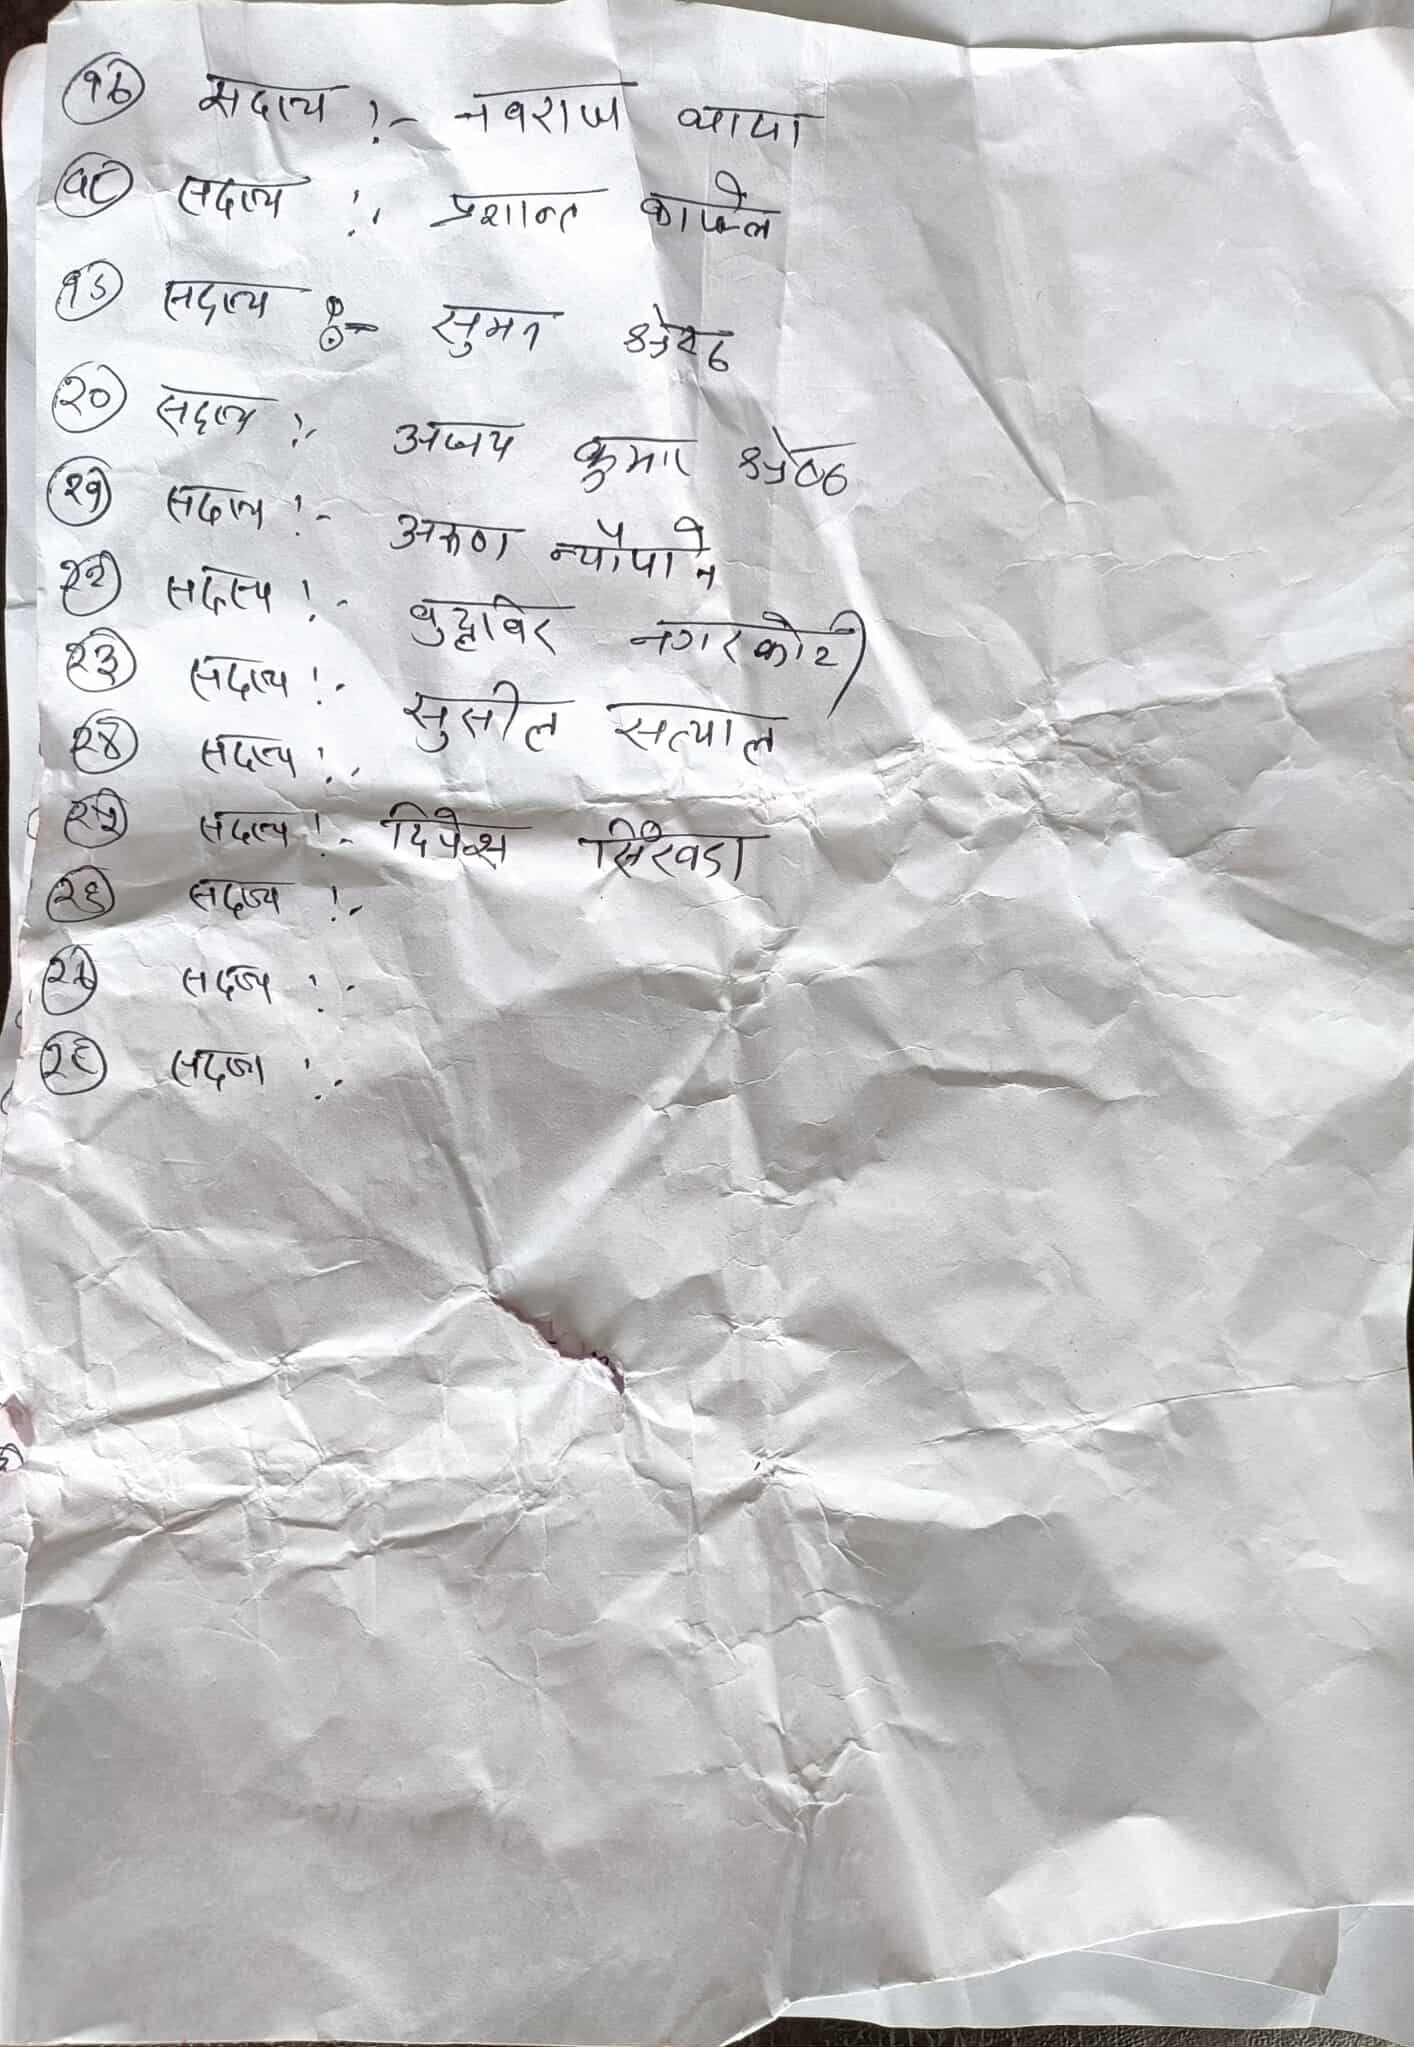 १७ सदस्य :- नवराज थापा
१८ सदस्य :- प्रशान्त काफ्ले
१९ सदस्य :- सुमन श्रेष्ठ
२० सदस्य :- अजय कुमार श्रेष्ठ
२१ सदस्य :- अरुण न्यौपाने
२२ सदस्य :- बुद्धविर नगरकोटी
२३ सदस्य :- सुसील सत्याल
२४ सदस्य :-
२५ सदस्य :- दिपेश सिंखडा
२६ सदस्य :-
२७ सदस्य :-
२८ सदस्य :-